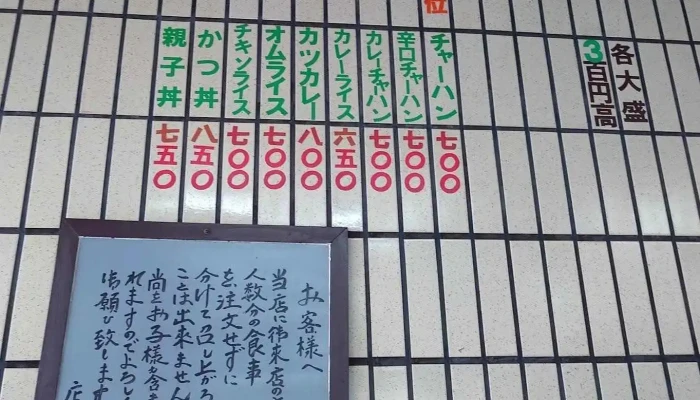 各大盛
3百円高
位
チャーハン 七〇〇
辛口チャーハン 七〇〇
カレーチャーハン 七〇〇
カレーライス 六五〇
カツカレー 八〇〇
オムライス 七〇〇
チキンライス 七〇〇
かつ丼 八五〇
親子丼 七五〇
お客様へ
当店に御来店の
人数分の食事
を、注文せずに
分けて召し上がる
ことは出来ません
尚、お子様も含ま
れますのでよろし
御願い致します
店